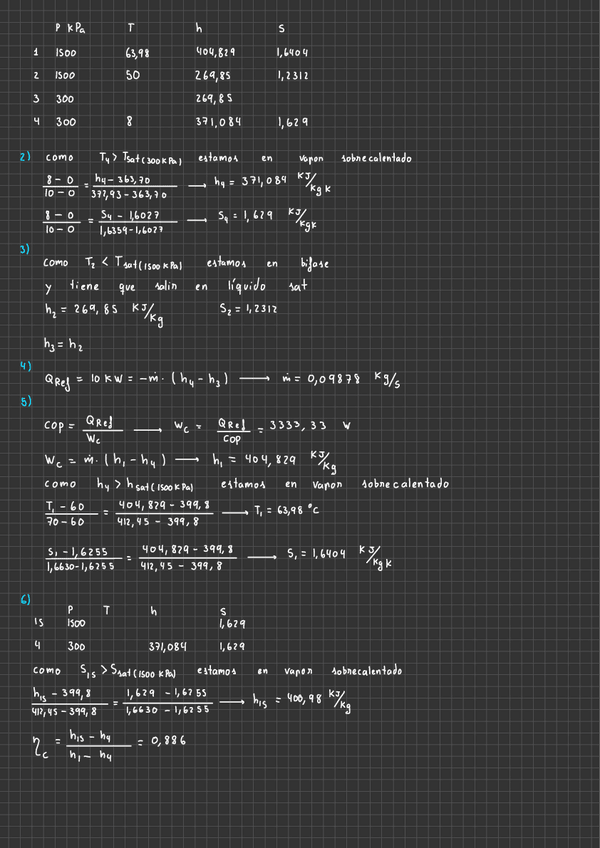 P KPa T h S
1 1500 63,98 404,829 1,6404
2 1500 50 269,85 1,2312
3 300 269,85
4 300 8 371,084 1,629
2) como T4 > Tsat(300KPa) estamos en vapor sobrecalentado
(8 - 0)/(10 - 0) = (h4 - 363,70)/(372,93 - 363,70) → h4 = 371,084 KJ/Kg K
(8 - 0)/(10 - 0) = (S4 - 1,6027)/(1,6359 - 1,6027) → S4 = 1,629 KJ/KgK
3)
como T2 < Tsat(1500KPa) estamos en bifase
y tiene que salir en líquido sat
h2 = 269,85 KJ/Kg S2 = 1,2312
h3 = h2
4)
QRef = 10 KW = -ṁ · (h4 - h3) → ṁ = 0,09878 Kg/s
5)
COP = QRef/Wc → Wc = QRef/COP = 3333,33 W
Wc = ṁ · (h1 - h4) → h1 = 404,829 KJ/Kg
como h4 > hsat(1500KPa) estamos en vapor sobrecalentado
(T1 - 60)/(70 - 60) = (404,829 - 399,8)/(412,45 - 399,8) → T1 = 63,98 °C
(S1 - 1,6255)/(1,6630 - 1,6255) = (404,829 - 399,8)/(412,45 - 399,8) → S1 = 1,6404 KJ/Kg K
6)
P T h S
1S 1500 1,629
4 300 371,084 1,629
como S1S > Ssat(1500 KPa) estamos en vapor sobrecalentado
(h1S - 399,8)/(412,45 - 399,8) = (1,629 - 1,6255)/(1,6630 - 1,6255) → h1S = 400,98 KJ/Kg
ηc = (h1S - h4)/(h1 - h4) = 0,886